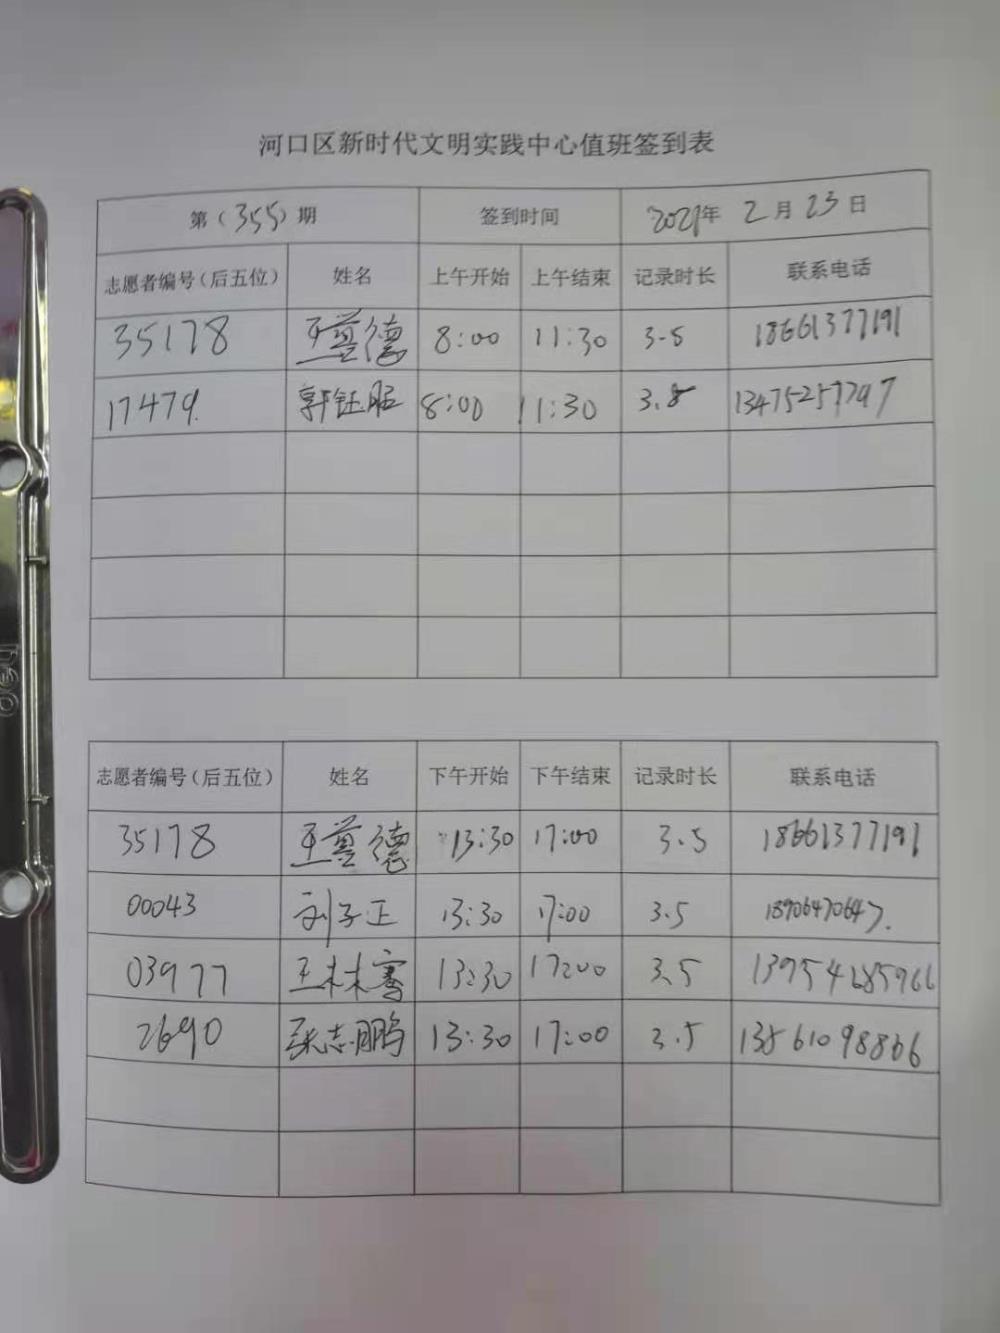 河口区新时代文明实践中心值班签到表
第（355）期 签到时间 2021年 2月23日
志愿者编号（后五位） 姓名 上午开始 上午结束 记录时长 联系电话
35178 王尊德 8:00 11:30 3.5 18661377191
17479. 郭钰服 8:00 11:30 3.5
志愿者编号（后五位） 姓名 下午开始 下午结束 记录时长 联系电话
35178 王尊德 13:30 17:00 3.5 18661377191
00043 刘子正 13:30 17:00 3.5 18906470647.
03977 王林骞 13:30 17:00 3.5 13954685966
2690 张志鹏 13:30 17:00 3.5 13561098866